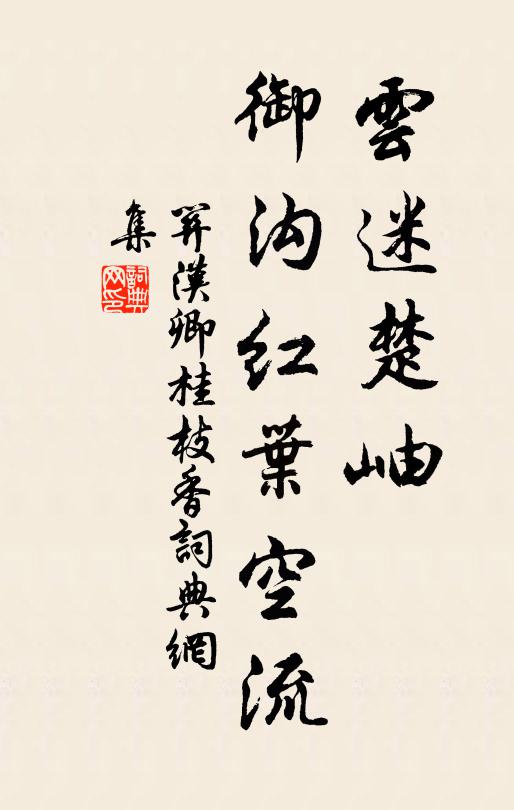 雲迷楚岫
御沟红葉空流
関漢卿桂枝香詞典網
集
詞典
网印